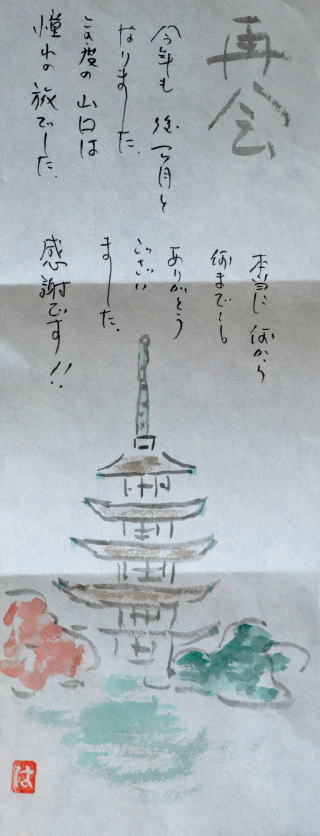 再会
今年も後一ヶ月と
なりました。
この度の山口は
憧れの旅でした。
本当に何から
何までも
ありがとう
ござい
ました。
感謝です!!
は